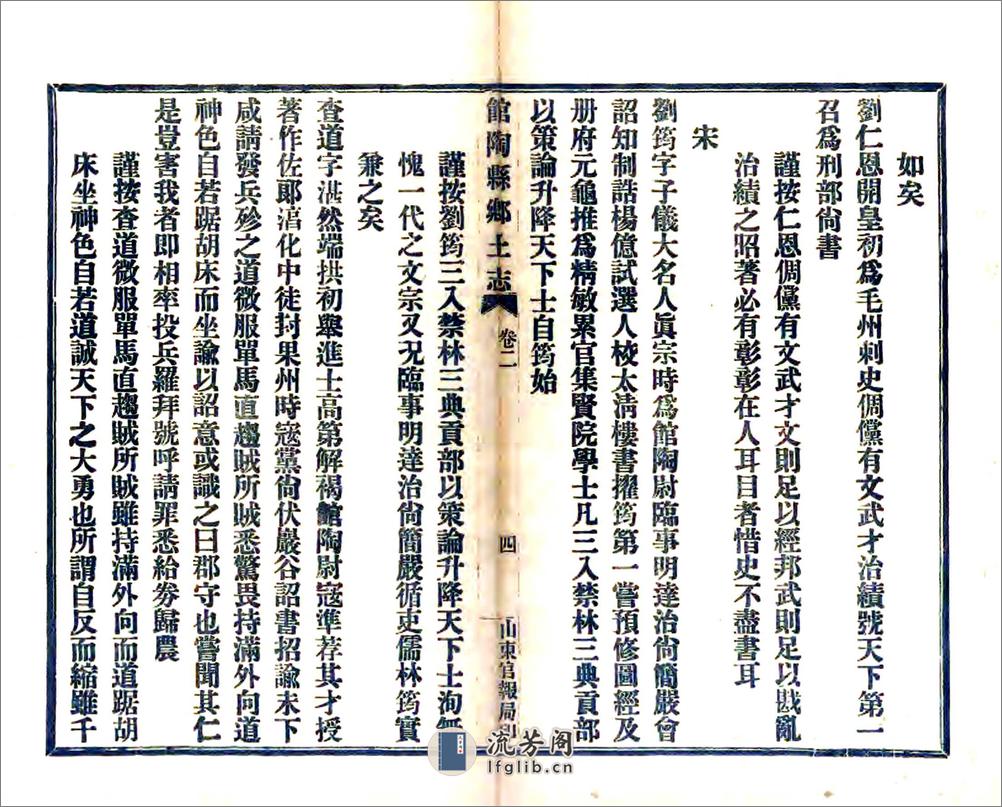 如矣
劉仁恩開皇初爲毛州刺史倜儻有文武才治績號天下第一
召爲刑部尙書
謹按仁恩倜儻有文武才文則足以經邦武則足以戡亂
治績之昭著必有彰彰在人耳目者惜史不盡書耳
宋
劉筠字子儀大名人眞宗時爲館陶尉臨事明達治尙簡嚴會
詔知制誥楊億試選人校太淸樓書擢筠第一嘗預修圖經及
册府元龜推爲精敏累官集賢院學士凡三入禁林三典貢部
以策論升降天下士自筠始
館陶縣鄕土志 卷二 四 山東官報局印
謹按劉筠三入禁林三典貢部以策論升降天下士洵無
愧一代之文宗又况臨事明達治尙簡嚴循吏儒林筠實
兼之矣
查道字湛然端拱初舉進士高第解褐館陶尉寇準荐其才授
著作佐郞淯化中徒封果州時寇黨尙伏巖谷詔書招諭未下
咸請發兵殄之道微服單馬直趨賊所賊悉驚畏持滿外向道
神色自若踞胡床而坐諭以詔意或識之曰郡守也嘗聞其仁
是豈害我者卽相率投兵羅拜號呼請罪悉給劵歸農
謹按查道微服單馬直趨賊所賊雖持滿外向而道踞胡
床坐神色自若道誠天下之大勇也所謂自反而縮雖千
流芳阁
lfglib.cn